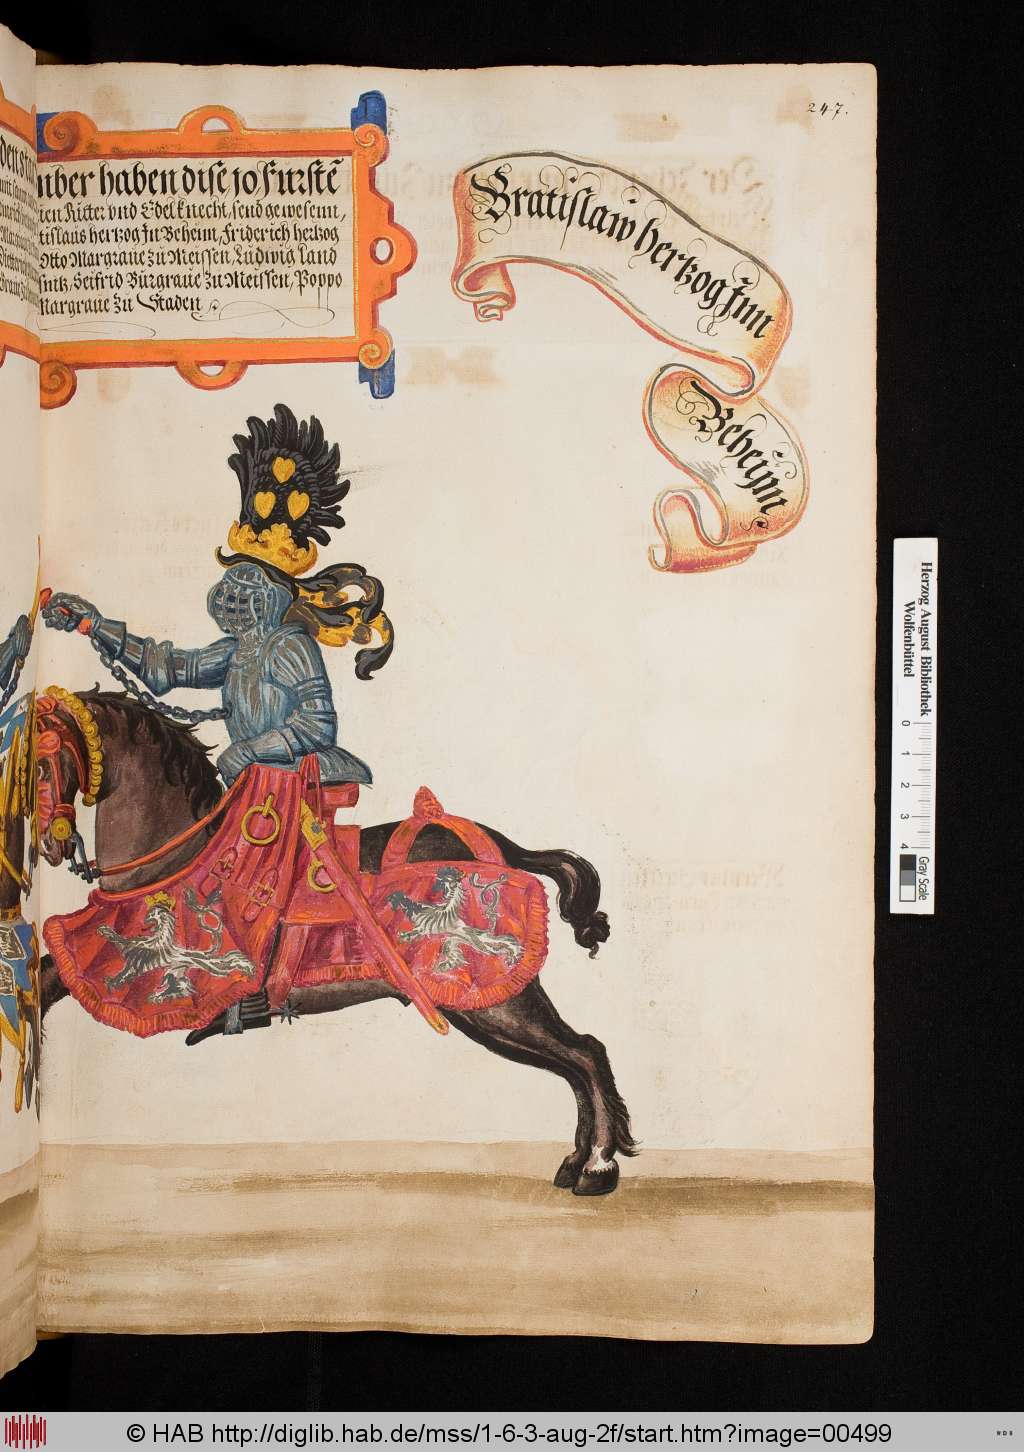 247.
uber haben dise 10 Furstẽ
ien Ritter vnd Edelknecht, send gewesenn,
tislaus hertzog Jn Beheim, Friderich hertzog
Otto Margraue zu Meissen, Ludwig Land
Seifrid Burgraue zu Meissen, Poppo
Margraue zu Staden
Bratislaw hertzog Jnn
Beheijm
Herzog August Bibliothek
Wolfenbüttel
0 1 2 3 4
Gray Scale
© HAB http://diglib.hab.de/mss/1-6-3-aug-2f/start.htm?image=00499